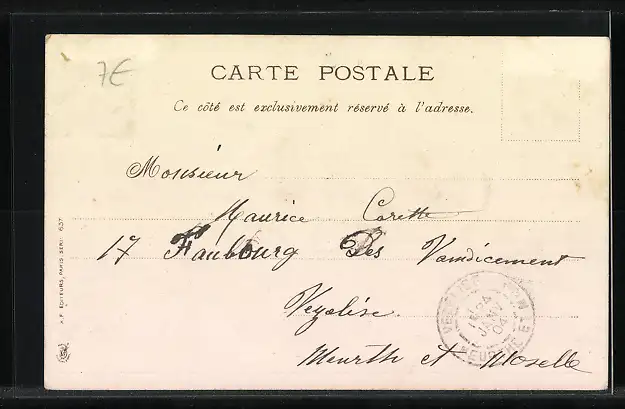 7€
CARTE POSTALE
Ce côté est exclusivement réservé à l'adresse.
Monsieur
Maurice Corette
17 Faubourg Des Vaudicement
Vezelise.
Meurth et Moselle
A.F. EDITEURS, PARIS. SERIE 637
VEZELISE
24
JANV
04